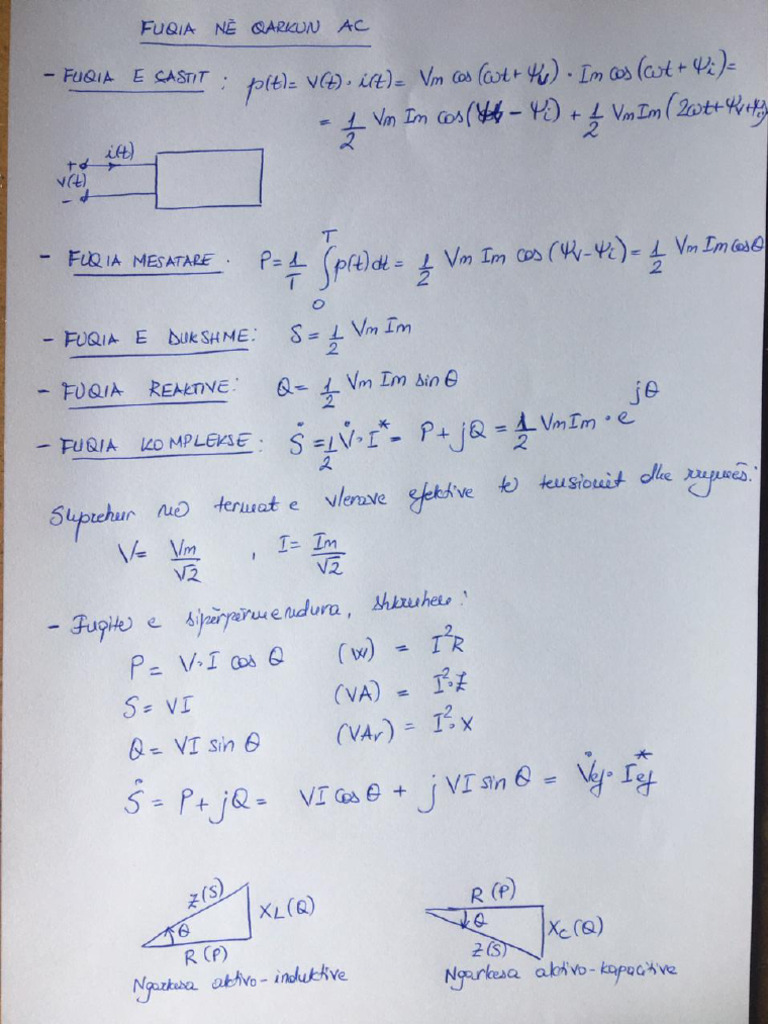 FUQIA NË QARKUN AC
- FUQIA E CASTIT : p(t)= v(t)·i(t)= Vm cos(ωt+Ψv)·Im cos(ωt+Ψi)=
= 1/2 Vm Im cos(Ψv-Ψi) + 1/2 Vm Im (2ωt+Ψv+Ψi)
i(t)
+
v(t)
-
- FUQIA MESATARE. P= 1/T ∫₀ᵀ p(t)dt = 1/2 Vm Im cos (Ψv-Ψi)= 1/2 Vm Im cosθ
- FUQIA E DUKSHME: S= 1/2 Vm Im
- FUQIA REAKTIVE: Q= 1/2 Vm Im sin θ
- FUQIA KOMPLEKSE: Ṡ = 1/2 V̇·I* = P+jQ = 1/2 VmIm · e^jθ
Shprehur në termat e vlerave efektive të tensionit dhe rrymës:
V= Vm/√2 , I= Im/√2
- Fuqitë e sipërpërmendura, shkruhen:
P= V·I cos θ (W) = I²R
S= VI (VA) = I²·Z
Q= VI sin θ (VAr) = I²·X
Ṡ = P+jQ= VI cos θ + j VI sin θ = V̇ef· I*ef
Z(S)
XL(Q)
θ
R(P)
Ngarkesa aktivo-induktive
R(P)
θ
XC(Q)
Z(S)
Ngarkesa aktivo-kapacitive